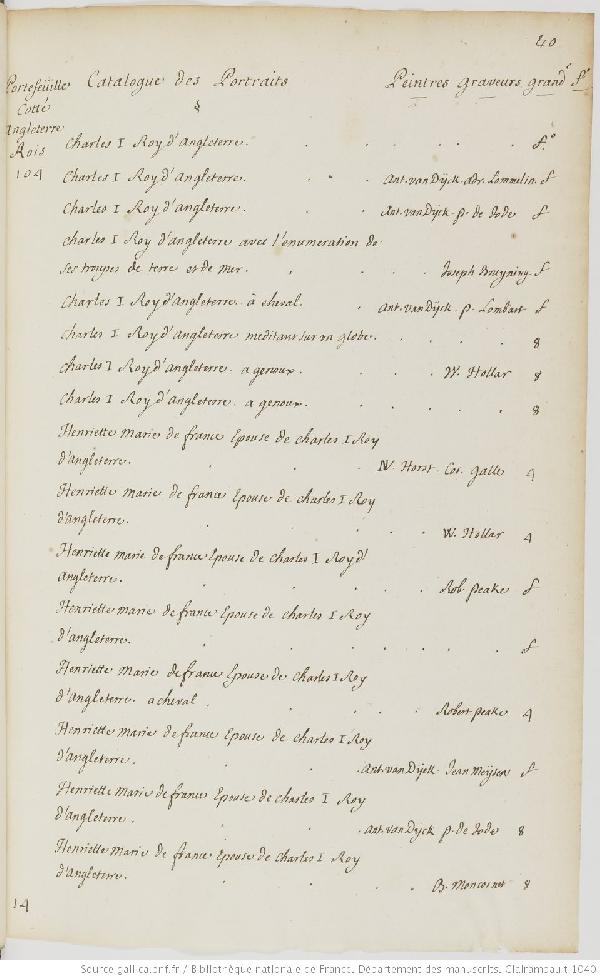 40
Portefeüille Catalogue des Portraits Peintres graveurs grandr fo
Cotté
Angleterre
Rois
104
Charles I Roy d'Angleterre. fo
Charles I Roy d'Angleterre. Ant. van Dijck. adr. Lommelin. f
Charles I Roy d'angleterre. Ant. van Dijck. p. de Jode f
Charles I Roy d'angleterre avec l'enumeration de
ses troupes de terre et de mer. Joseph Bruyning. f
Charles I Roy d'Angleterre. à cheval. Ant. van Dijck. p. Lombart f
Charles I Roy d'Angleterre meditant sur un globe. 8
Charles I Roy d'Angleterre. a genoux. W. Hollar 8
Charles I Roy d'Angleterre. a genoux. 8
Henriette Marie de france Epouse de Charles I Roy
d'Angleterre. N. Horst. Cor. Galle 4
Henriette Marie de france Epouse de Charles I Roy
d'Angleterre. W. Hollar 4
Henriette marie de france Epouse de Charles I Roy d'
Angleterre. Rob. peake f
Henriette marie de france Epouse de Charles I Roy
d'angleterre. f
Henriette Marie de france Epouse de Charles I Roy
d'Angleterre. a cheval. Robert peake 4
Henriette marie de france Epouse de Charles I Roy
d'Angleterre. Ant. van Dijck. Jean Meijsen f
Henriette Marie de france Epouse de Charles I Roy
d'Angleterre. Ant. van Dyck p. de Jode 8
Henriette Marie de france Epouse de Charles I Roy
d'Angleterre. B. Moncornet 8
14
Source gallica.bnf.fr / Bibliothèque nationale de France. Département des manuscrits. Clairambault 1040